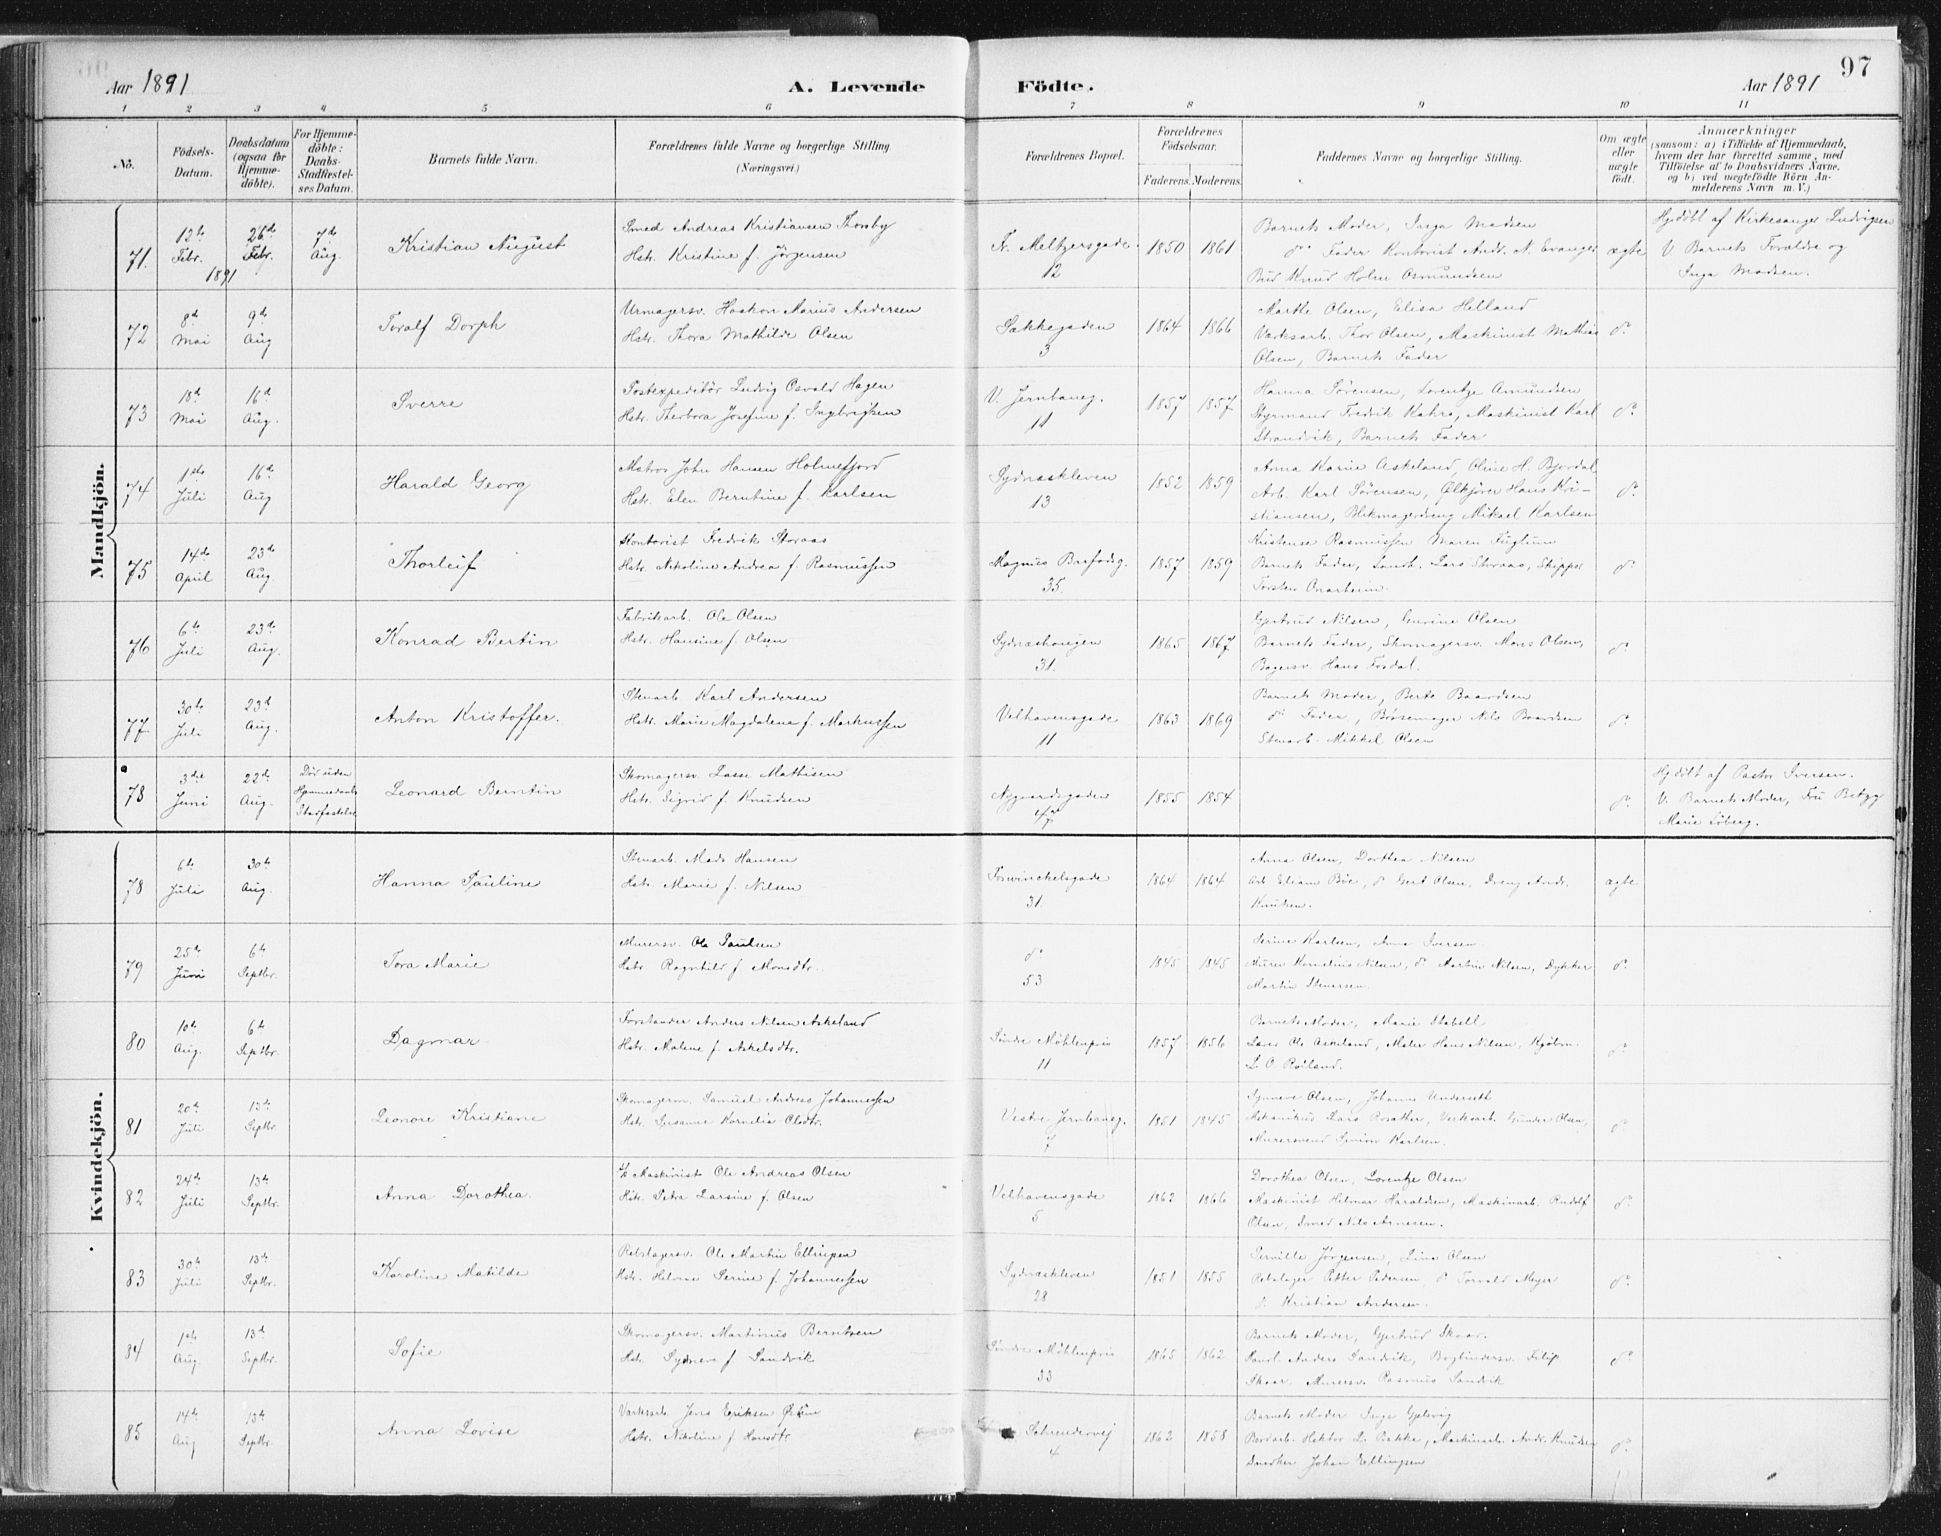 97
Aar 1891
A. Levende Födte.
Aar 1891
1 2 3 4 5 6 7 8 9 10 11
No.
Födsels-Datum.
Daabsdatum (ogsaa for Hjemme-döbte).
For Hjemme-döbte: Daabs-Stadfæstel-ses Datum.
Barnets fulde Navn.
Forældrenes fulde Navne og borgerlige Stilling
(Næringsvei.)
Forældrenes Bopæl.
Forældrenes Födselsaar.
Faderens. Moderens.
Faddernes Navne og borgerlige Stilling.
Om ægte eller uægte födt.
Anmærkninger
(saasom: a) i Tilfælde af Hjemmedaab,
hvem der har forrettet samme, med
Tilföielse af to Daabsvidners Navne,
og b) ved uægtefödte Börn An-
melderens Navn m. V.)
Mandkjön.
71. 12te Febr. 1891 26de Febr. 7de Aug. Kristian August
Smed Andreas Kristiansen Thorsby
Hstr. Kristine f. Jörgensen
Fr. Meltzersgade 12 1850 1861
Barnets Moder, Inga Madsen
do Fader Kontorist Andr. N. Evanger
Bud Knud Holm Osmundsen
ægte
Hj.döbt af Kirkesanger Ludvigsen
V. Barnets Forældre og
Inga Madsen.
72 8de Mai 9de Aug Toralf Dorph
Urmagersv. Haakon Marius Andersen
Hstr. Thora Mathilde Olsen
Sækkegaden 3 1864 1866
Marthe Olsen, Elisa Helland
Værksarb. Thor Olsen, Maskinist Mathias
Olsen, Barnets Fader
do
73 18de Mai 16de Aug. Sverre
Postexpeditör Ludvig Osvald Hagen
Hstr. Thorbora Josefine f. Ingbrigtsen
V. Jernbaneg. 11 1857 1857
Hanna Sörensen, Lorentze Amundsen
Styrmand Fredrik Kahrs, Maskinist Karl
Strandvik, Barnets Fader
do
74 1ste Juli 16de Aug Harald Georg
Matros John Hansen Holmefjord
Hstr. Elen Berntine f. Karlsen
Sydnæskleven 13 1852 1859
Anna Karine Askeland, Oline H. Bjordal
Arb. Karl Sörensen, Ölkjörer Hans Kri-
stiansen, Blikmagerdreng Mikael Karlsen
do
75 14de April 23de Aug. Thorleif
Kontorist Fredrik Storaas
Hstr. Nikoline Andrea f. Rasmussen
Magnus Barfodsg. 35. 1857 1859
Kristense Rasmussen Maren Fuglum
Barnets Fader, Landh. Lars Storaas, Skipper
Torsten Onarheim.
do
76 6te Juli 23de Aug. Konrad Bertin
Fabrikarb. Ole Olsen
Hstr. Hansine f. Olsen
Sydnæshougen 31. 1865 1867
Gjertrud Nilsen, Gurine Olsen
Barnets Fader, Skomagersv. Mons Olsen,
Bagersv. Hans Fosdal.
do
77 30te Juli 23de Aug. Anton Kristoffer.
Stenarb. Karl Andersen
Hstr. Marie Magdalena f. Markussen
Velhavensgade 11 1863 1869
Barnets Moder, Berte Baardsen
do Fader, Bösemager Nils Baardsen
Stenarb. Mikkel Olsen
do
78 3die Juni 22de Aug. Död uden Hjemmedaabs Stadfæstelse Leonard Berntin
Skomagersv. Lasse Mathisen
Hstr. Sigrid f. Knudsen
Nygaardsgaden 1855 1854
do
Hj.döbt af Pastor Iversen.
V. Barnets Moder, Fru Betzy
Marie Löberg.
Kvindekjön.
78 6te Juli 30te Aug. Hanna Pauline
Stenarb. Mads Hansen
Hstr. Marie f. Nilsen
Foswinckelsgade 31. 1864 1864
Anna Olsen, Dorthea Nilsen
Arb. Eliam Böe, do Gert Olsen, Dreng Andr.
Knutsen.
ægte
79 25de Juni 6te Septbr. Tora Marie
Murersv. Ole Paulsen
Hstr. Ragnhild f. Monsdtr.
do 53 1845 1845
Serine Karlsen, Anna Iversen
Murer Kornelius Nilsen, do Martin Nilsen, Dykker
Martin Stenersen.
do
80 10de Aug. 6te Septbr. Dagmar
Forstander Anders Nilsen Askeland
Hstr. Malene f. Askelsdtr.
Söndre Möhlenpris 11 1857 1856
Barnets Moder, Marie Stabell
Lærer Ole Askeland, Maler Hans Nilsen, Kjöbm.
L. O. Röiland.
do
81 20de Juli 13te Septbr. Leonore Kristiane
Skomagerm. Samuel Andreas Johannessen
Hstr. Susanne Kornelia Olsdtr.
Vestre Jernbaneg. 7 1851 1845
Synneve Olsen, Johanne Underseth
Mekanikus Lars Rosather, Værksarb. Gunder Olsen,
Murersvend Simon Karlsen.
do
82 24de Juli 13te Septbr. Anna Dorothea.
Maskinist Ole Andreas Olsen
Hstr. Petra Larsine f. Olsen
Velhavensgade 5 1862 1866
Dorothea Olsen, Lorentze Olsen
Maskinist Hilmar Haraldsen, Maskinarb. Rudolf
Olsen, Smed Nils Arnesen.
do
83 30te Juli 13te Septbr. Karoline Matilde
Rebslagersv. Ole Martin Ellingsen
Hstr. Helene Serine f. Johannessen
Sydnæskleven 28 1851 1855
Pernille Jörgensen, Lina Olsen
Rebslager Petter Pedersen, do Torvald Meyer
do Kristian Andersen.
do
84 1ste Aug 13de Septbr. Sofie
Skomagersv. Martinus Berntsen
Hstr. Sydneve f. Sandvik
Söndre Möhlenpris 33 1865 1862
Barnets Moder, Gjertrud Skaar.
Anders Sandvik, Bogbindersv. Filip
Skaar, Murersv. Rasmus Sandvik
do
85 14de Aug 13te Septbr. Anna Lovise
Værksarb. Jens Eriksen
Hstr. Nikoline f. Hansdtr.
4 1862 1858
Barnets Moder Inga Gjelsvig
Bordarb. Hektor L. Bakke, Maskinarb. Andr. Knudsen
Snedker Johan Ellingsen
do